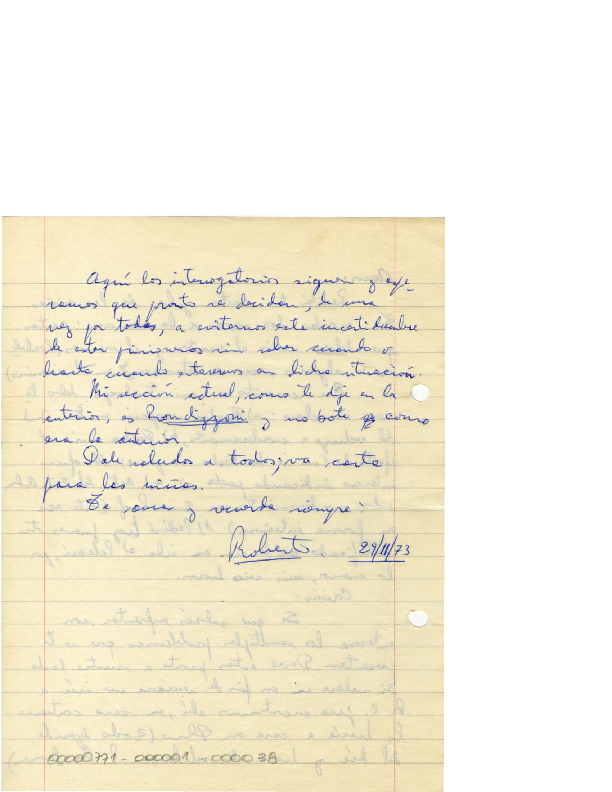 Aquí los interrogatorios siguen y espe-
ramos que pronto se decidan, de una
vez por todas, a evitarnos esta incertidumbre
de estar prisioneros sin saber cuando o
hasta cuando estaremos en dicha situación.
Mi sección actual, como te dije en la
anterior, es Rondizzoni y no bote como
era la anterior.
Dale saludos a todos; va carta
para las niñas.
Te ama y recuerda siempre:
Roberto 29/11/73
00000771-000001-000038